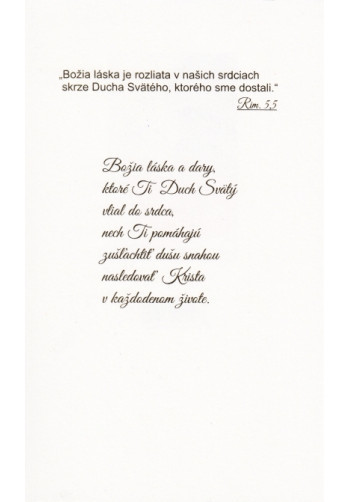 „Božia láska je rozliata v našich srdciach
skrze Ducha Svätého, ktorého sme dostali.“
Rim. 5,5
Božia láska a dary,
ktoré Ti Duch Svätý
vlial do srdca,
nech Ti pomáhajú
zušľachtiť dušu snahou
nasledovať Krista
v každodenom živote.